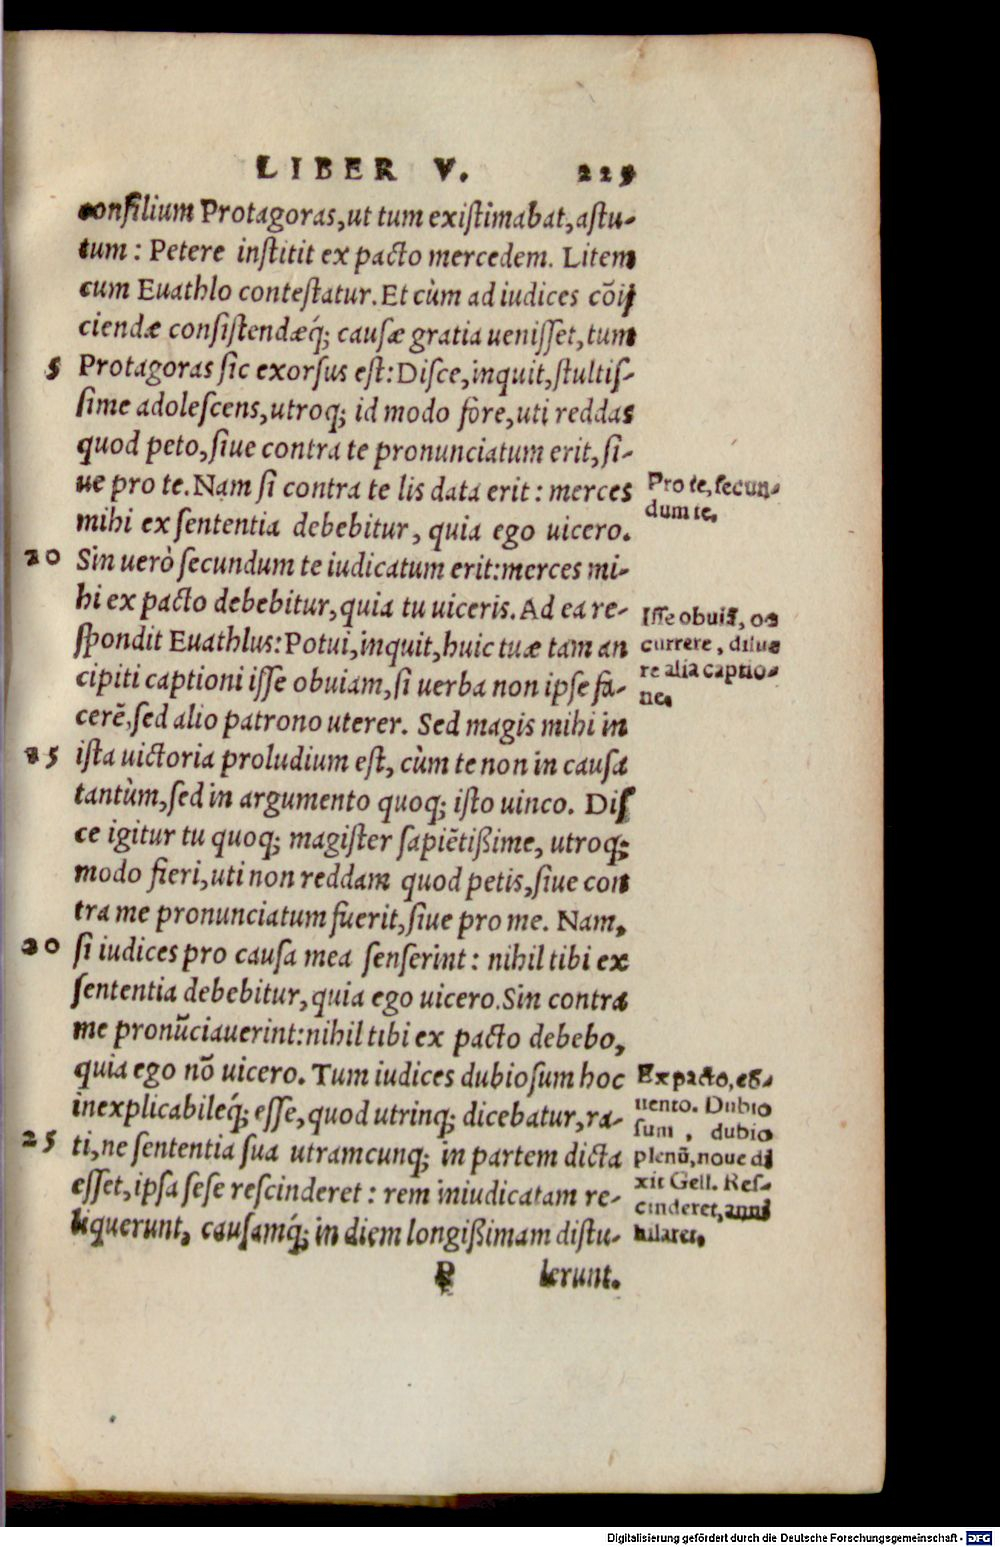 LIBER V. 225
conſilium Protagoras, ut tum exiſtimabat, aſtu-
tum: Petere inſtitit ex pacto mercedem. Litem
cum Euathlo conteſtatur. Et cùm ad iudices cõij
ciendæ conſiſtendæq́; cauſæ gratia ueniſſet, tum
5 Protagoras ſic exorſus eſt: Diſce, inquit, ſtultiſ-
ſime adoleſcens, utroq; id modo fore, uti reddas
quod peto, ſiue contra te pronunciatum erit, ſi-
ue pro te. Nam ſi contra te lis data erit: merces
Pro te, ſecun-
dum te.
mihi ex ſententia debebitur, quia ego uicero.
10 Sin uerò ſecundum te iudicatum erit: merces mi-
hi ex pacto debebitur, quia tu uiceris. Ad ea re-
ſpondit Euathlus: Potui, inquit, huic tuæ tam an
cipiti captioni iſſe obuiam, ſi uerba non ipſe fa-
Iſſe obuiã, oc
currere, dilue
re alia captio-
ne.
cerẽ, ſed alio patrono uterer. Sed magis mihi in
15 iſta uictoria proludium eſt, cùm te non in cauſa
tantùm, ſed in argumento quoq; iſto uinco. Diſ
ce igitur tu quoq; magiſter ſapiẽtißime, utroq;
modo fieri, uti non reddam quod petis, ſiue con
tra me pronunciatum fuerit, ſiue pro me. Nam,
20 ſi iudices pro cauſa mea ſenſerint: nihil tibi ex
ſententia debebitur, quia ego uicero. Sin contra
me pronũciauerint: nihil tibi ex pacto debebo,
quia ego nõ uicero. Tum iudices dubioſum hoc
inexplicabileq́; eſſe, quod utrinq; dicebatur, ra-
25 ti, ne ſententia ſua utramcunq; in partem dicta
eſſet, ipſa ſeſe reſcinderet: rem iniudicatam re-
liquerunt, cauſamq́; in diem longißimam diſtu-
Ex pacto, ex
uento. Dubio
ſum, dubio
plenũ, noue di
xit Gell. Reſ-
cinderet, anni
hilaret.
P lerunt.
Digitalisierung gefördert durch die Deutsche Forschungsgemeinschaft - DFG